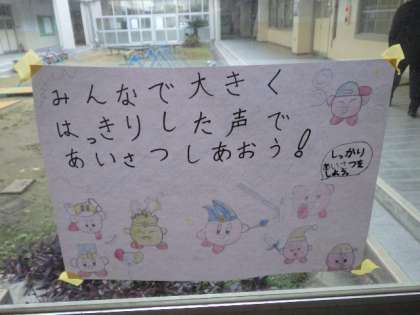 みんなで大きく
はっきりした声で
あいさつしあおう!
しっかり
あいさつを
しよう。